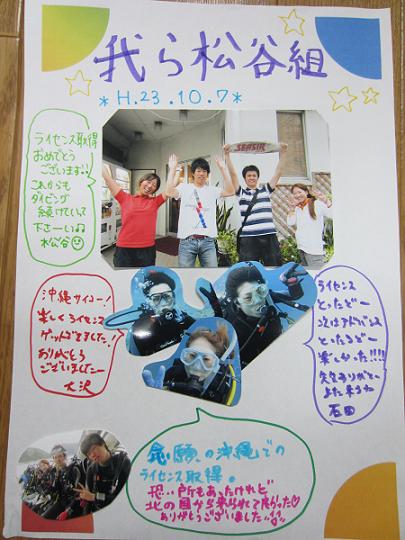 我ら松谷組
*H.23.10.7*
ライセンス取得
おめでとう
ございます!!
これからも
ダイビング
続けていって
下さーい♫
松谷☺
SEASIR
沖縄サイコー!
楽しくライセンス
ゲットができました!
ありがとう
ございましたー
大沢
ライセンス
とったどー
次はアドバンス
とったるどー
楽しかった!!!!
先生ありがとー
また来るね
石田
念願の沖縄での
ライセンス取得。
恐い所もあったけれど
北の国から来られて良かった♡
ありがとうございました